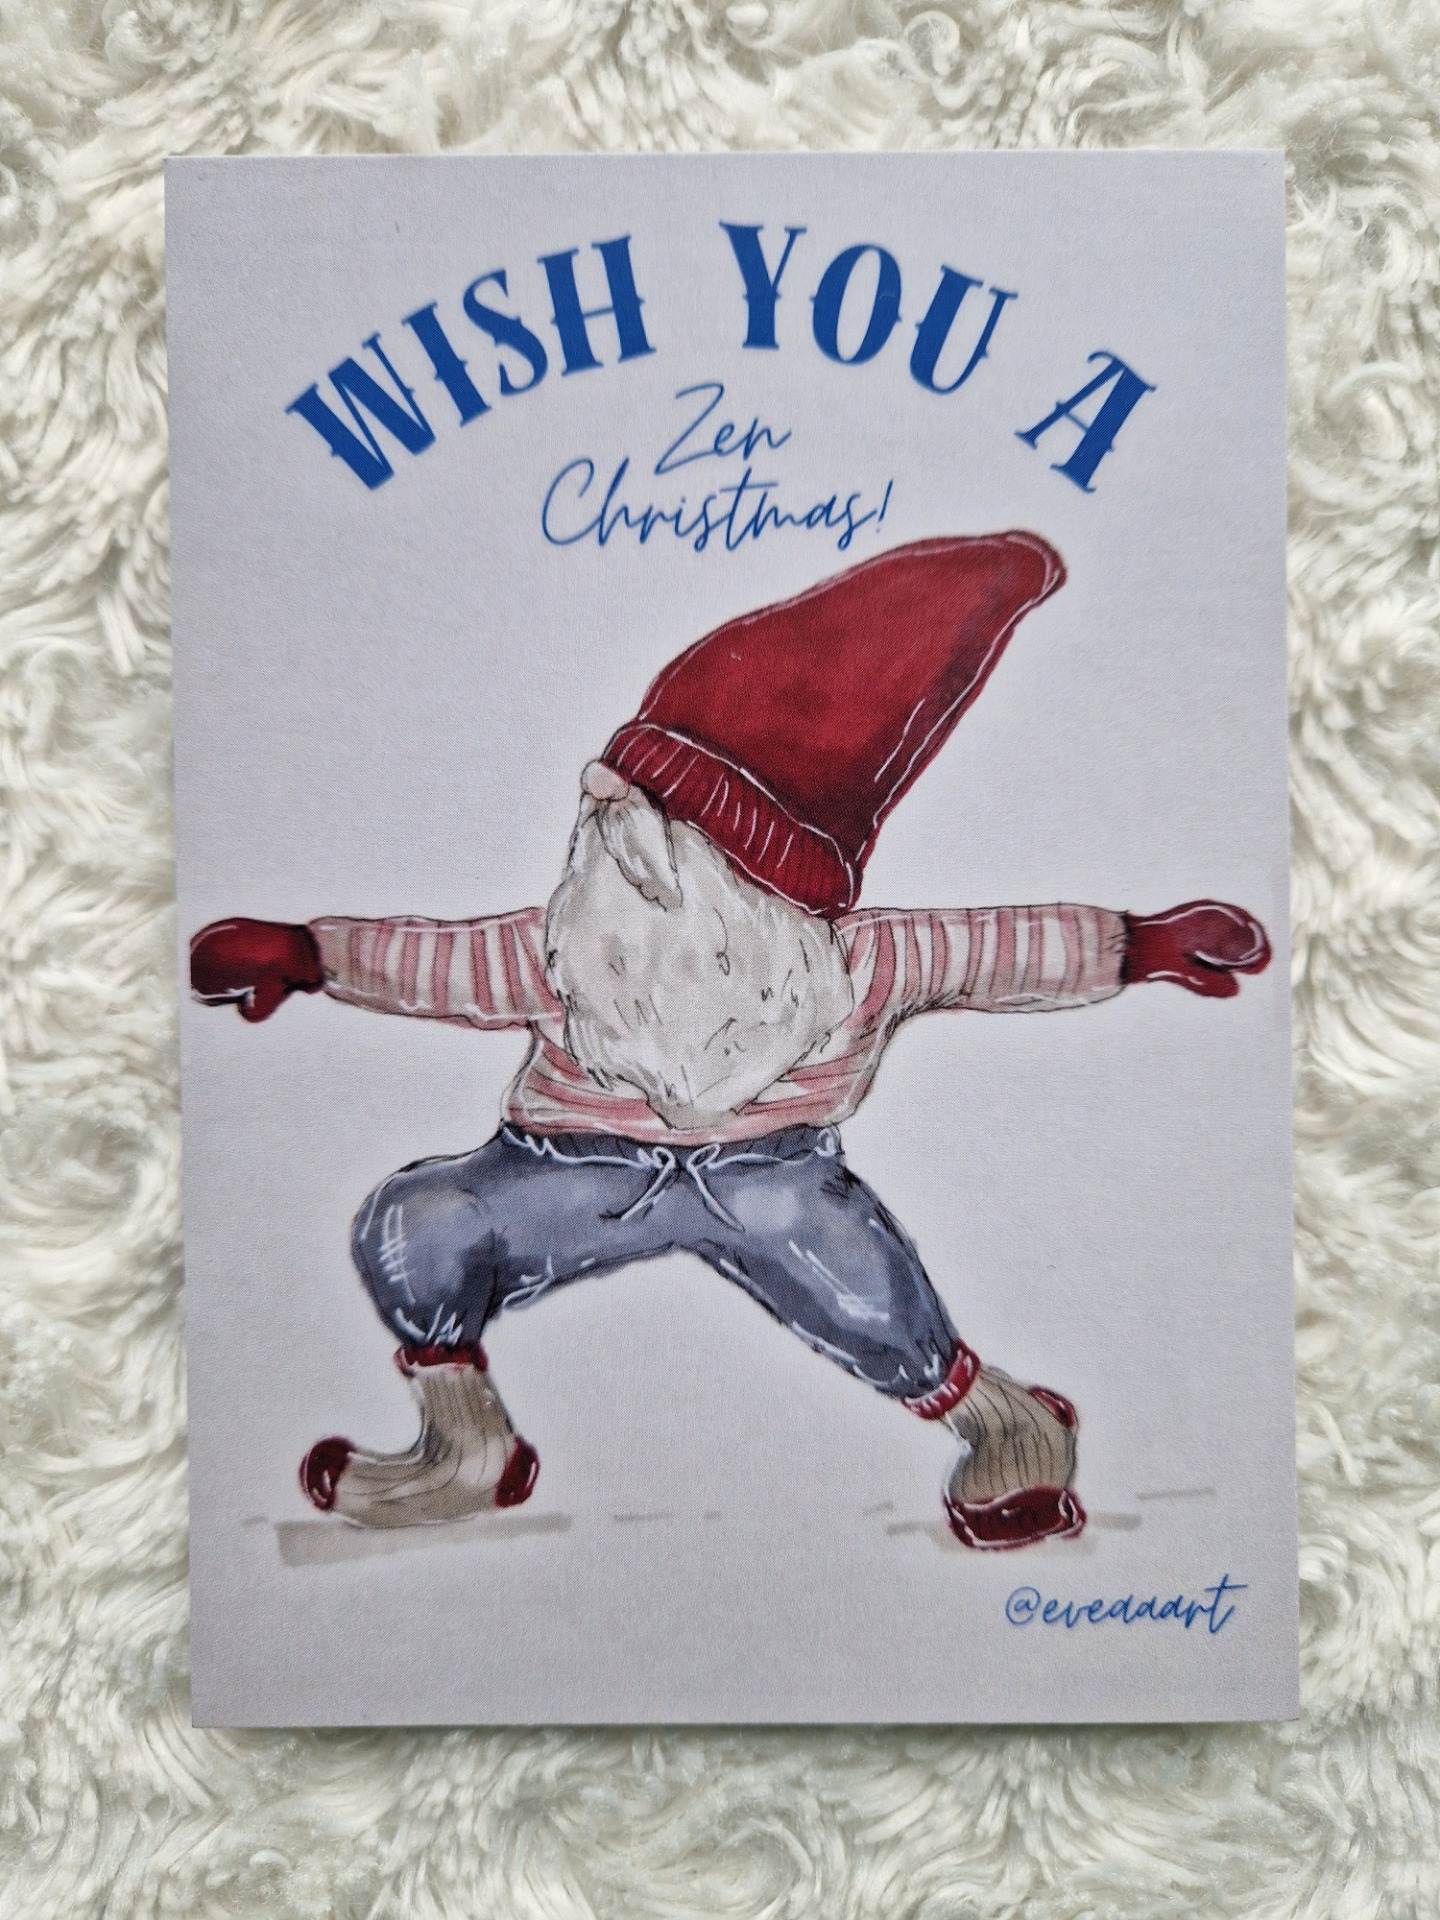 WISH YOU A
Zen
Christmas!
@eveaaart